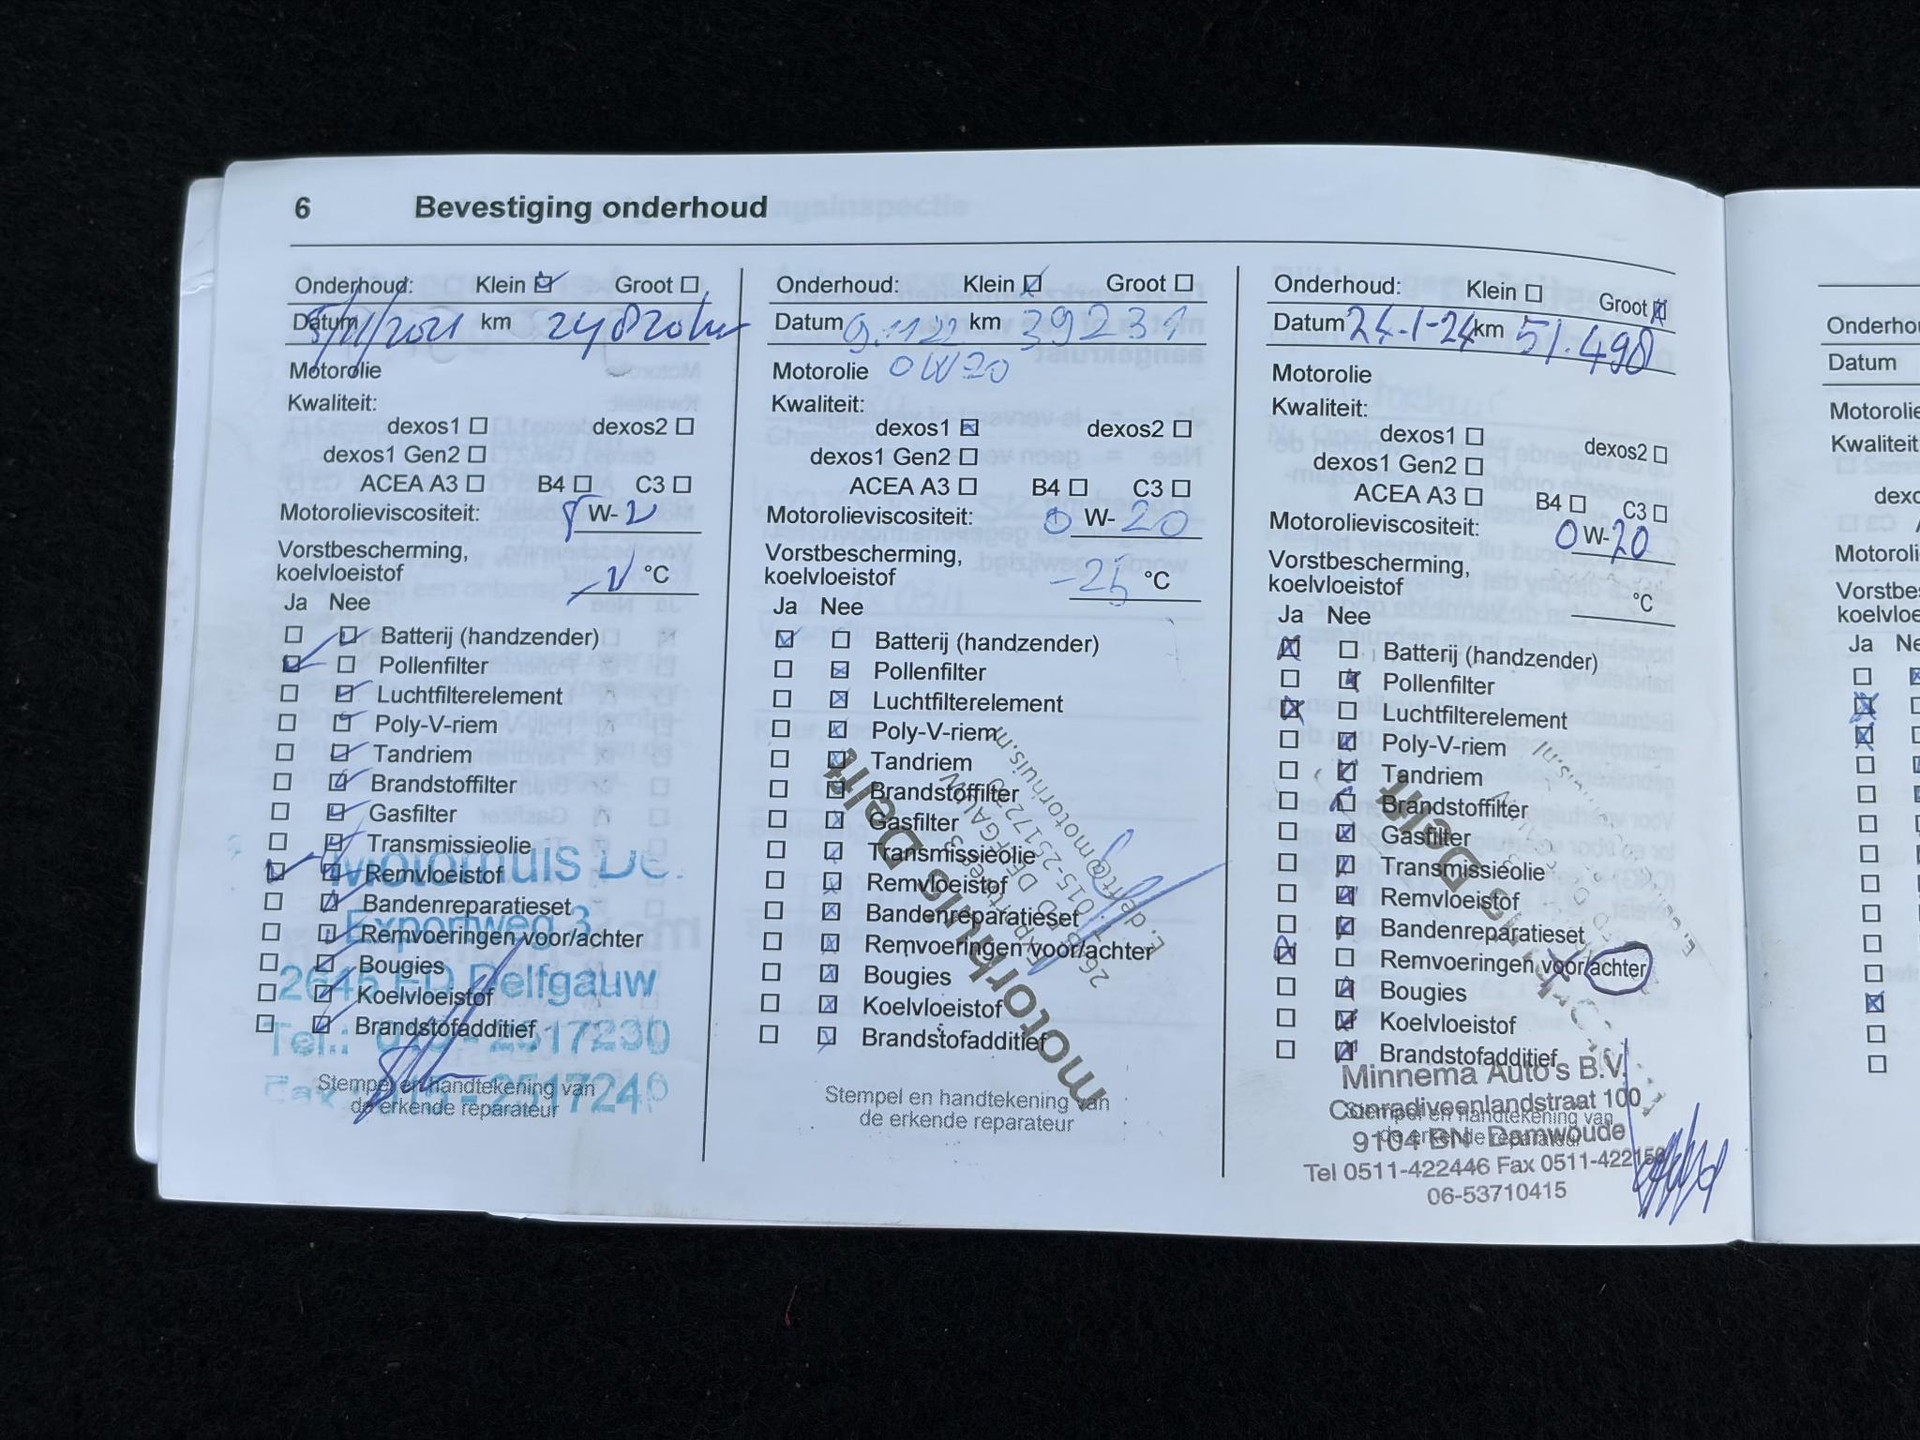 6 Bevestiging onderhoud
Onderhoud: Klein Groot
Datum km
Motorolie
Kwaliteit:
dexos1 dexos2
dexos1 Gen2
ACEA A3 B4 C3
Motorolieviscositeit: W-
Vorstbescherming,
koelvloeistof °C
Ja Nee
Batterij (handzender)
Pollenfilter
Luchtfilterelement
Poly-V-riem
Tandriem
Brandstoffilter
Gasfilter
Transmissieolie
Remvloeistof
Bandenreparatieset
Remvoeringen voor/achter
Bougies
Koelvloeistof
Brandstofadditief
Stempel en handtekening van
de erkende reparateur
Exportweg 3
2645 ED Delfgauw
Tel.: 015 - 2517230
Fax 015 - 2517240
Onderhoud: Klein Groot
Datum 9.11.22 km 39231
Motorolie 0W20
Kwaliteit:
dexos1 dexos2
dexos1 Gen2
ACEA A3 B4 C3
Motorolieviscositeit: 0 W-20
Vorstbescherming,
koelvloeistof -25 °C
Ja Nee
Batterij (handzender)
Pollenfilter
Luchtfilterelement
Poly-V-riem
Tandriem
Brandstoffilter
Gasfilter
Transmissieolie
Remvloeistof
Bandenreparatieset
Remvoeringen voor/achter
Bougies
Koelvloeistof
Brandstofadditief
Stempel en handtekening van
de erkende reparateur
motorhuis Delft
Onderhoud: Klein Groot
Datum 24-1-24 km 51.498
Motorolie
Kwaliteit:
dexos1 dexos2
dexos1 Gen2
ACEA A3 B4 C3
Motorolieviscositeit: 0 W-20
Vorstbescherming,
koelvloeistof °C
Ja Nee
Batterij (handzender)
Pollenfilter
Luchtfilterelement
Poly-V-riem
Tandriem
Brandstoffilter
Gasfilter
Transmissieolie
Remvloeistof
Bandenreparatieset
Remvoeringen voor/achter
Bougies
Koelvloeistof
Brandstofadditief
Stempel en handtekening van
de erkende reparateur
Minnema Auto's B.V.
Conradiveenlandstraat 100
9104 BN Damwoude
Tel 0511-422446 Fax 0511-422150
06-53710415
Datum
Ja